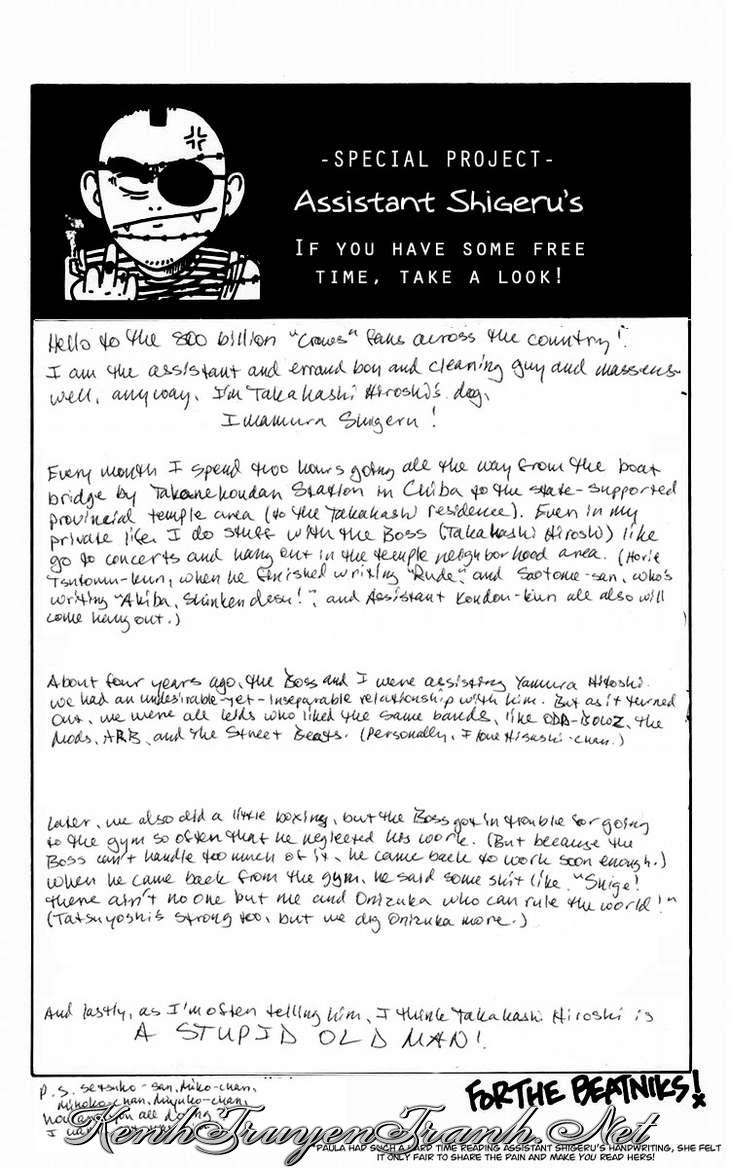 -SPECIAL PROJECT-
Assistant Shigeru's
IF YOU HAVE SOME FREE
TIME, TAKE A LOOK!
Hello to the 800 billion "Crows" fans across the country!
I am the assistant and errand boy and cleaning guy and
well, anyway, I'm Takahashi Hiroshi's dog,
Imamura Shigeru!
Every month I spend two hours going all the way from the boat
bridge by Takanekoudan Station in Chiba to the state-supported
provincial temple area (to the Takahashi residence). Even in my
private life I do stuff with the Boss (Takahashi Hiroshi) like
go to concerts and hang out in the temple neighborhood area. (Horie
Tsutomu-kun, when he finished writing "Rude", and Saotome-san, who's
writing "Akiba, Shinken desu!", and Assistant Kondou-kun all also will
come hang out.)
About four years ago, the Boss and I were assisting Yamura Hitoshi.
We had an undesirable-yet-inseparable relationship with him. But as it turned
out, we were all kids who liked the same bands, like ODA-BOWZ, the
Mods, ARB, and the Street Beats. (Personally, I love Hisashi-chan.)
Later, we also did a little boxing, but the Boss got in trouble for going
to the gym so often that he neglected his work. (But because the
Boss can't handle too much of it, he came back to work soon enough.)
When he came back from the gym, he said some shit like, "Shige!
There ain't no one but me and Onizuka who can rule the world!"
(Tatsuyoshi's strong too, but we dig Onizuka more.)
And lastly, as I'm often telling him, I think Takahashi Hiroshi is
A STUPID OLD MAN!
P.S. Setsuko-san, Miko-chan,
FOR THE BEATNIKS!
KenhTruyenTranh.Net
PAULA HAD SUCH A HARD TIME READING ASSISTANT SHIGERU'S HANDWRITING, SHE FELT
IT ONLY FAIR TO SHARE THE PAIN AND MAKE YOU READ HERS!